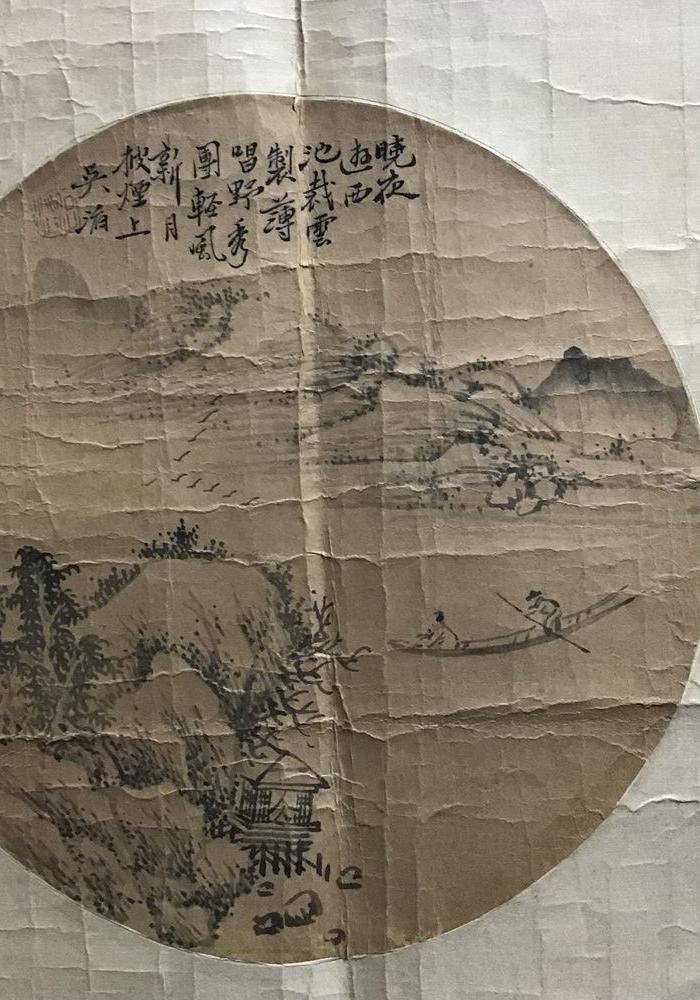 曉夜
遊西
池裁雲
製薄
唱野秀
團輕風
新月
披煙上
吳滔